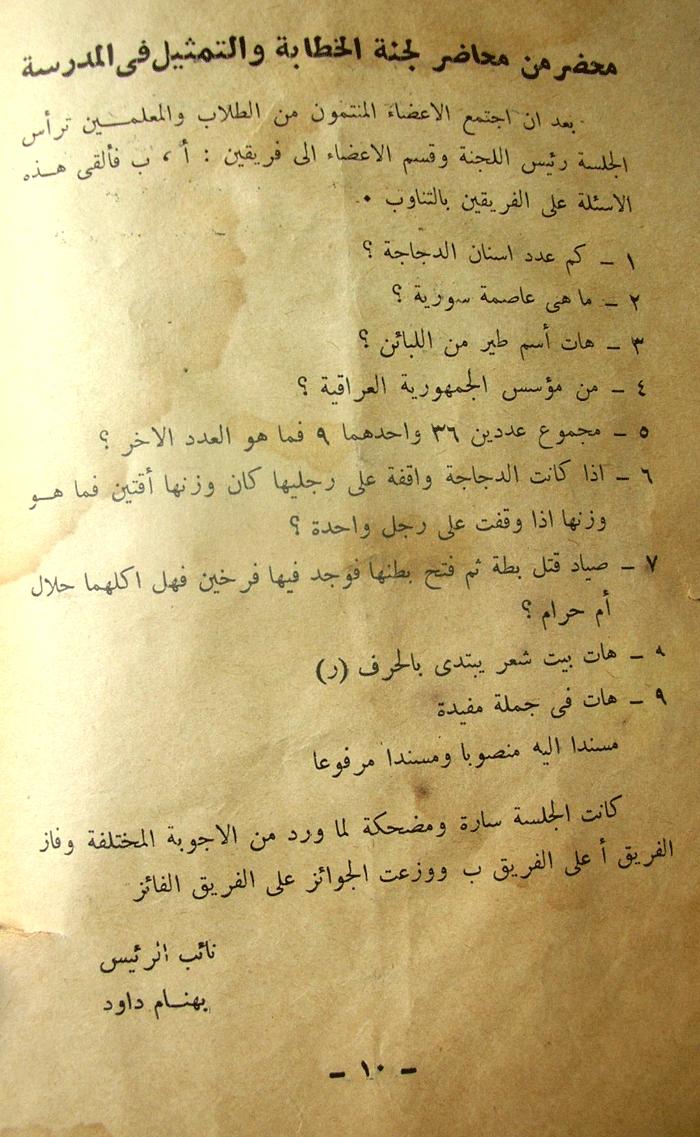 محضر من محاضر لجنة الخطابة والتمثيل فى المدرسة
بعد ان اجتمع الاعضاء المنتمون من الطلاب والمعلمـــين ترأس
الجلسة رئيس اللجنة وقسم الاعضاء الى فريقين : أ ، ب فألقى هـذه
الاسئلة على الفريقين بالتناوب .
١ ـ كم عدد اسنان الدجاجة ؟
٢ ـ ما هى عاصمة سورية ؟
٣ ـ هات أسم طير من اللبائن ؟
٤ ـ من مؤسس الجمهورية العراقية ؟
٥ ـ مجموع عددين ٣٦ واحدهما ٩ فما هو العدد الاخر ؟
٦ ـ اذا كانت الدجاجة واقفة على رجليها كان وزنها أقتين فما هـو
وزنها اذا وقفت على رجل واحدة ؟
٧ ـ صياد قتل بطة ثم فتح بطنها فوجد فيها فرخين فهل اكلهما حلال
أم حرام ؟
٩ ـ هات بيت شعر يبتدى بالحرف (ر)
٩ ـ هات فى جملة مفيدة
مسندا اليه منصوبا ومسندا مرفوعا
كانت الجلسة سارة ومضحكة لما ورد من الاجوبة المختلفة وفاز
الفريق أ على الفريق ب ووزعت الجوائز على الفريق الفائز
نائب الرئيس
بهنـام داود
ـ ١٠ ـ